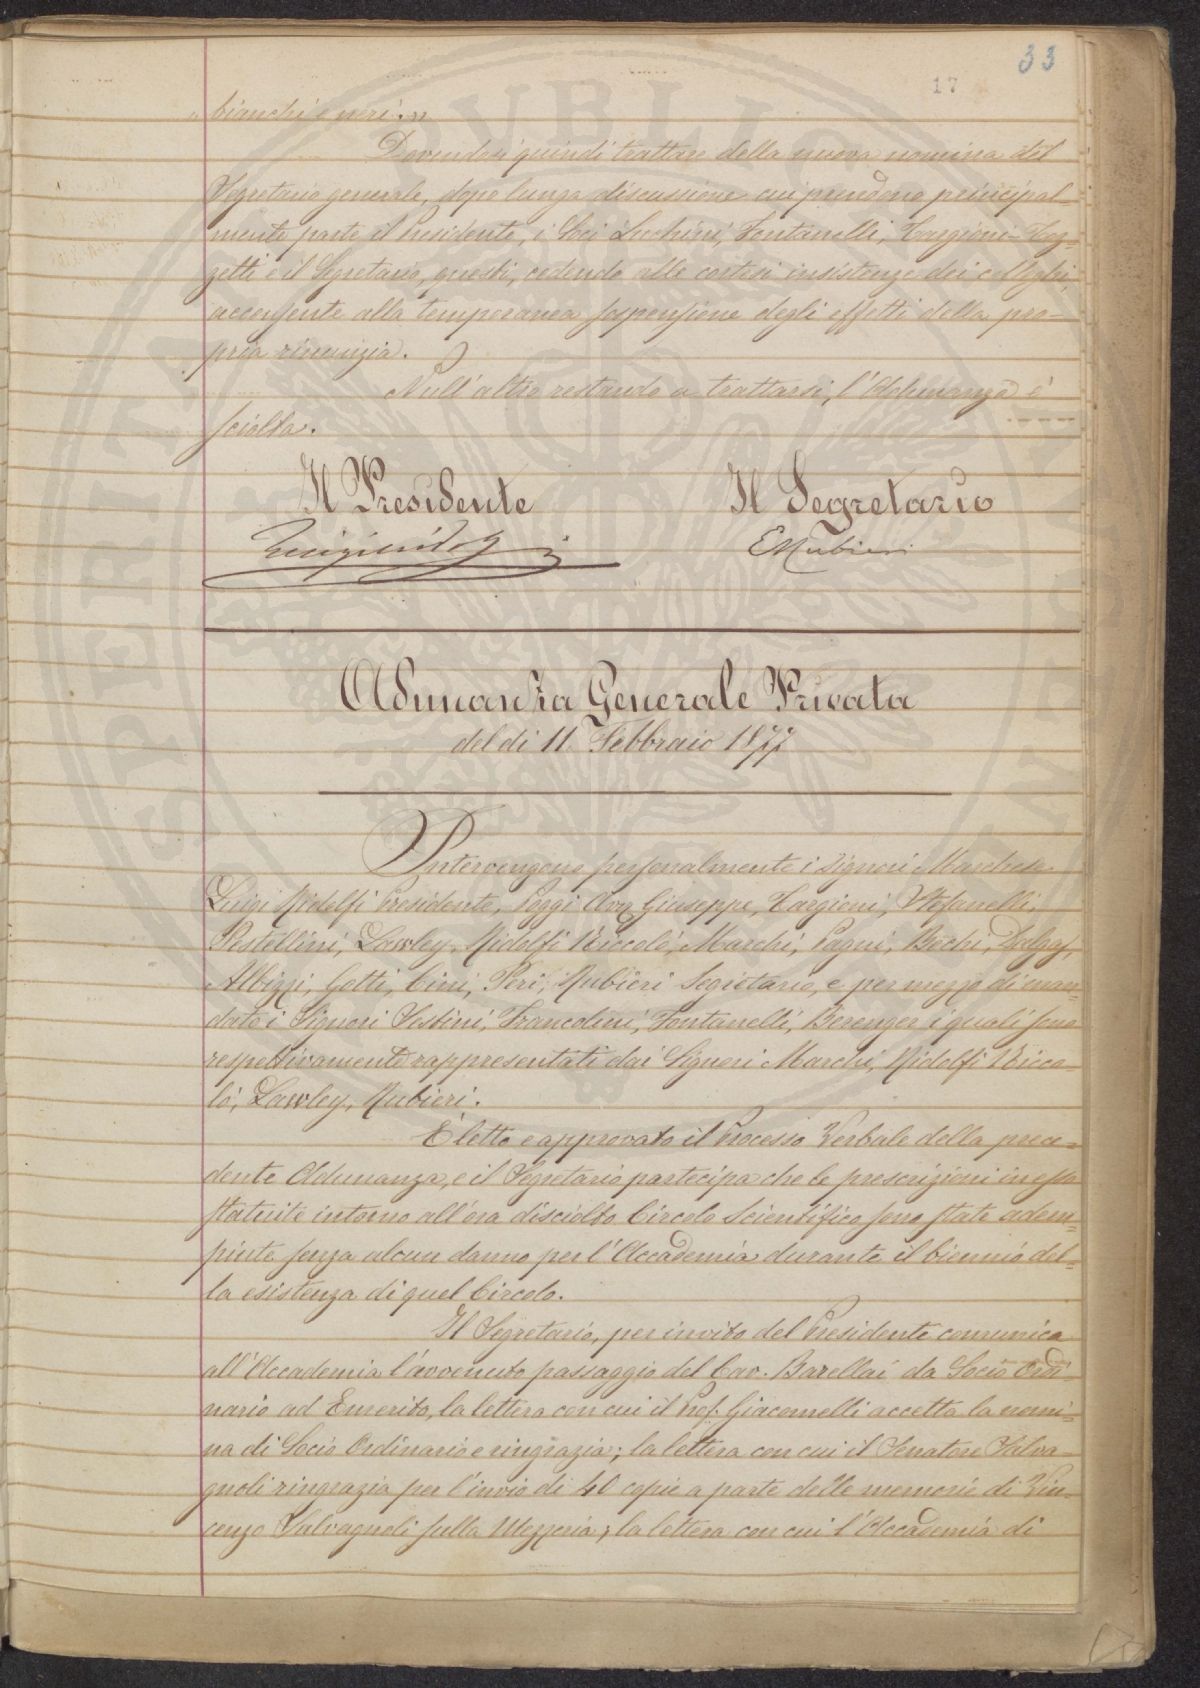 33
17
„ bianchi e neri. „
Dovendosi quindi trattare della nuova nomina del
Segretario generale, dopo lunga discussione cui prendono principal-
mente parte il Presidente, i Soci Luchini, Fontanelli, Targioni-Toz-
zetti e il Segretario, questi, cedendo alle cortesi insistenze dei colleghi,
accensente alla temporanea sospensione degli effetti della pro-
pria rinunzia.
Null'altro restando a trattarsi, l'Adunanza è
sciolta.
Il Presidente Il Segretario
Luigi Ridolfi ERubieri
Adunanza Generale Privata
del dì 11 Febbraio 1877
Intervengono personalmente i Signori Marchese
Luigi Ridolfi Presidente, Poggi Avv. Giuseppe, Targioni, Stefanelli,
Pestellini, Lawley, Ridolfi Niccolò, Marchi, Pagni, Bechi, Dalgas,
Albizzi, Gotti, Cini, Peri, Rubieri Segretario, e per mezzo di man-
dato i Signori Vestini, Francolini, Fontanelli, Bérenger i quali sono
respettivamente rappresentati dai Signori Marchi, Ridolfi Nicco-
lò, Lawley, Rubieri.
È letto e approvato il Processo Verbale della prece-
dente Adunanza, e il Segretario partecipa che le prescrizioni in essa
statuite intorno all'ora disciolto Circolo Scientifico sono state adem-
piute senza alcun danno per l'Accademia durante il biennio del-
la esistenza di quel Circolo.
Il Segretario, per invito del Presidente comunica
all'Accademia l'avvenuto passaggio del Cav. Barellai da Socio Ordi-
nario ad Emerito, la lettera con cui il Prof. Giacomelli accetta la nomi-
na di Socio Ordinario e ringrazia; la lettera con cui il Senatore Salva-
gnoli ringrazia per l'invio di 40 copie a parte delle memorie di Vin-
cenzo Salvagnoli sulla Mezzeria; la lettera con cui l'Accademia di